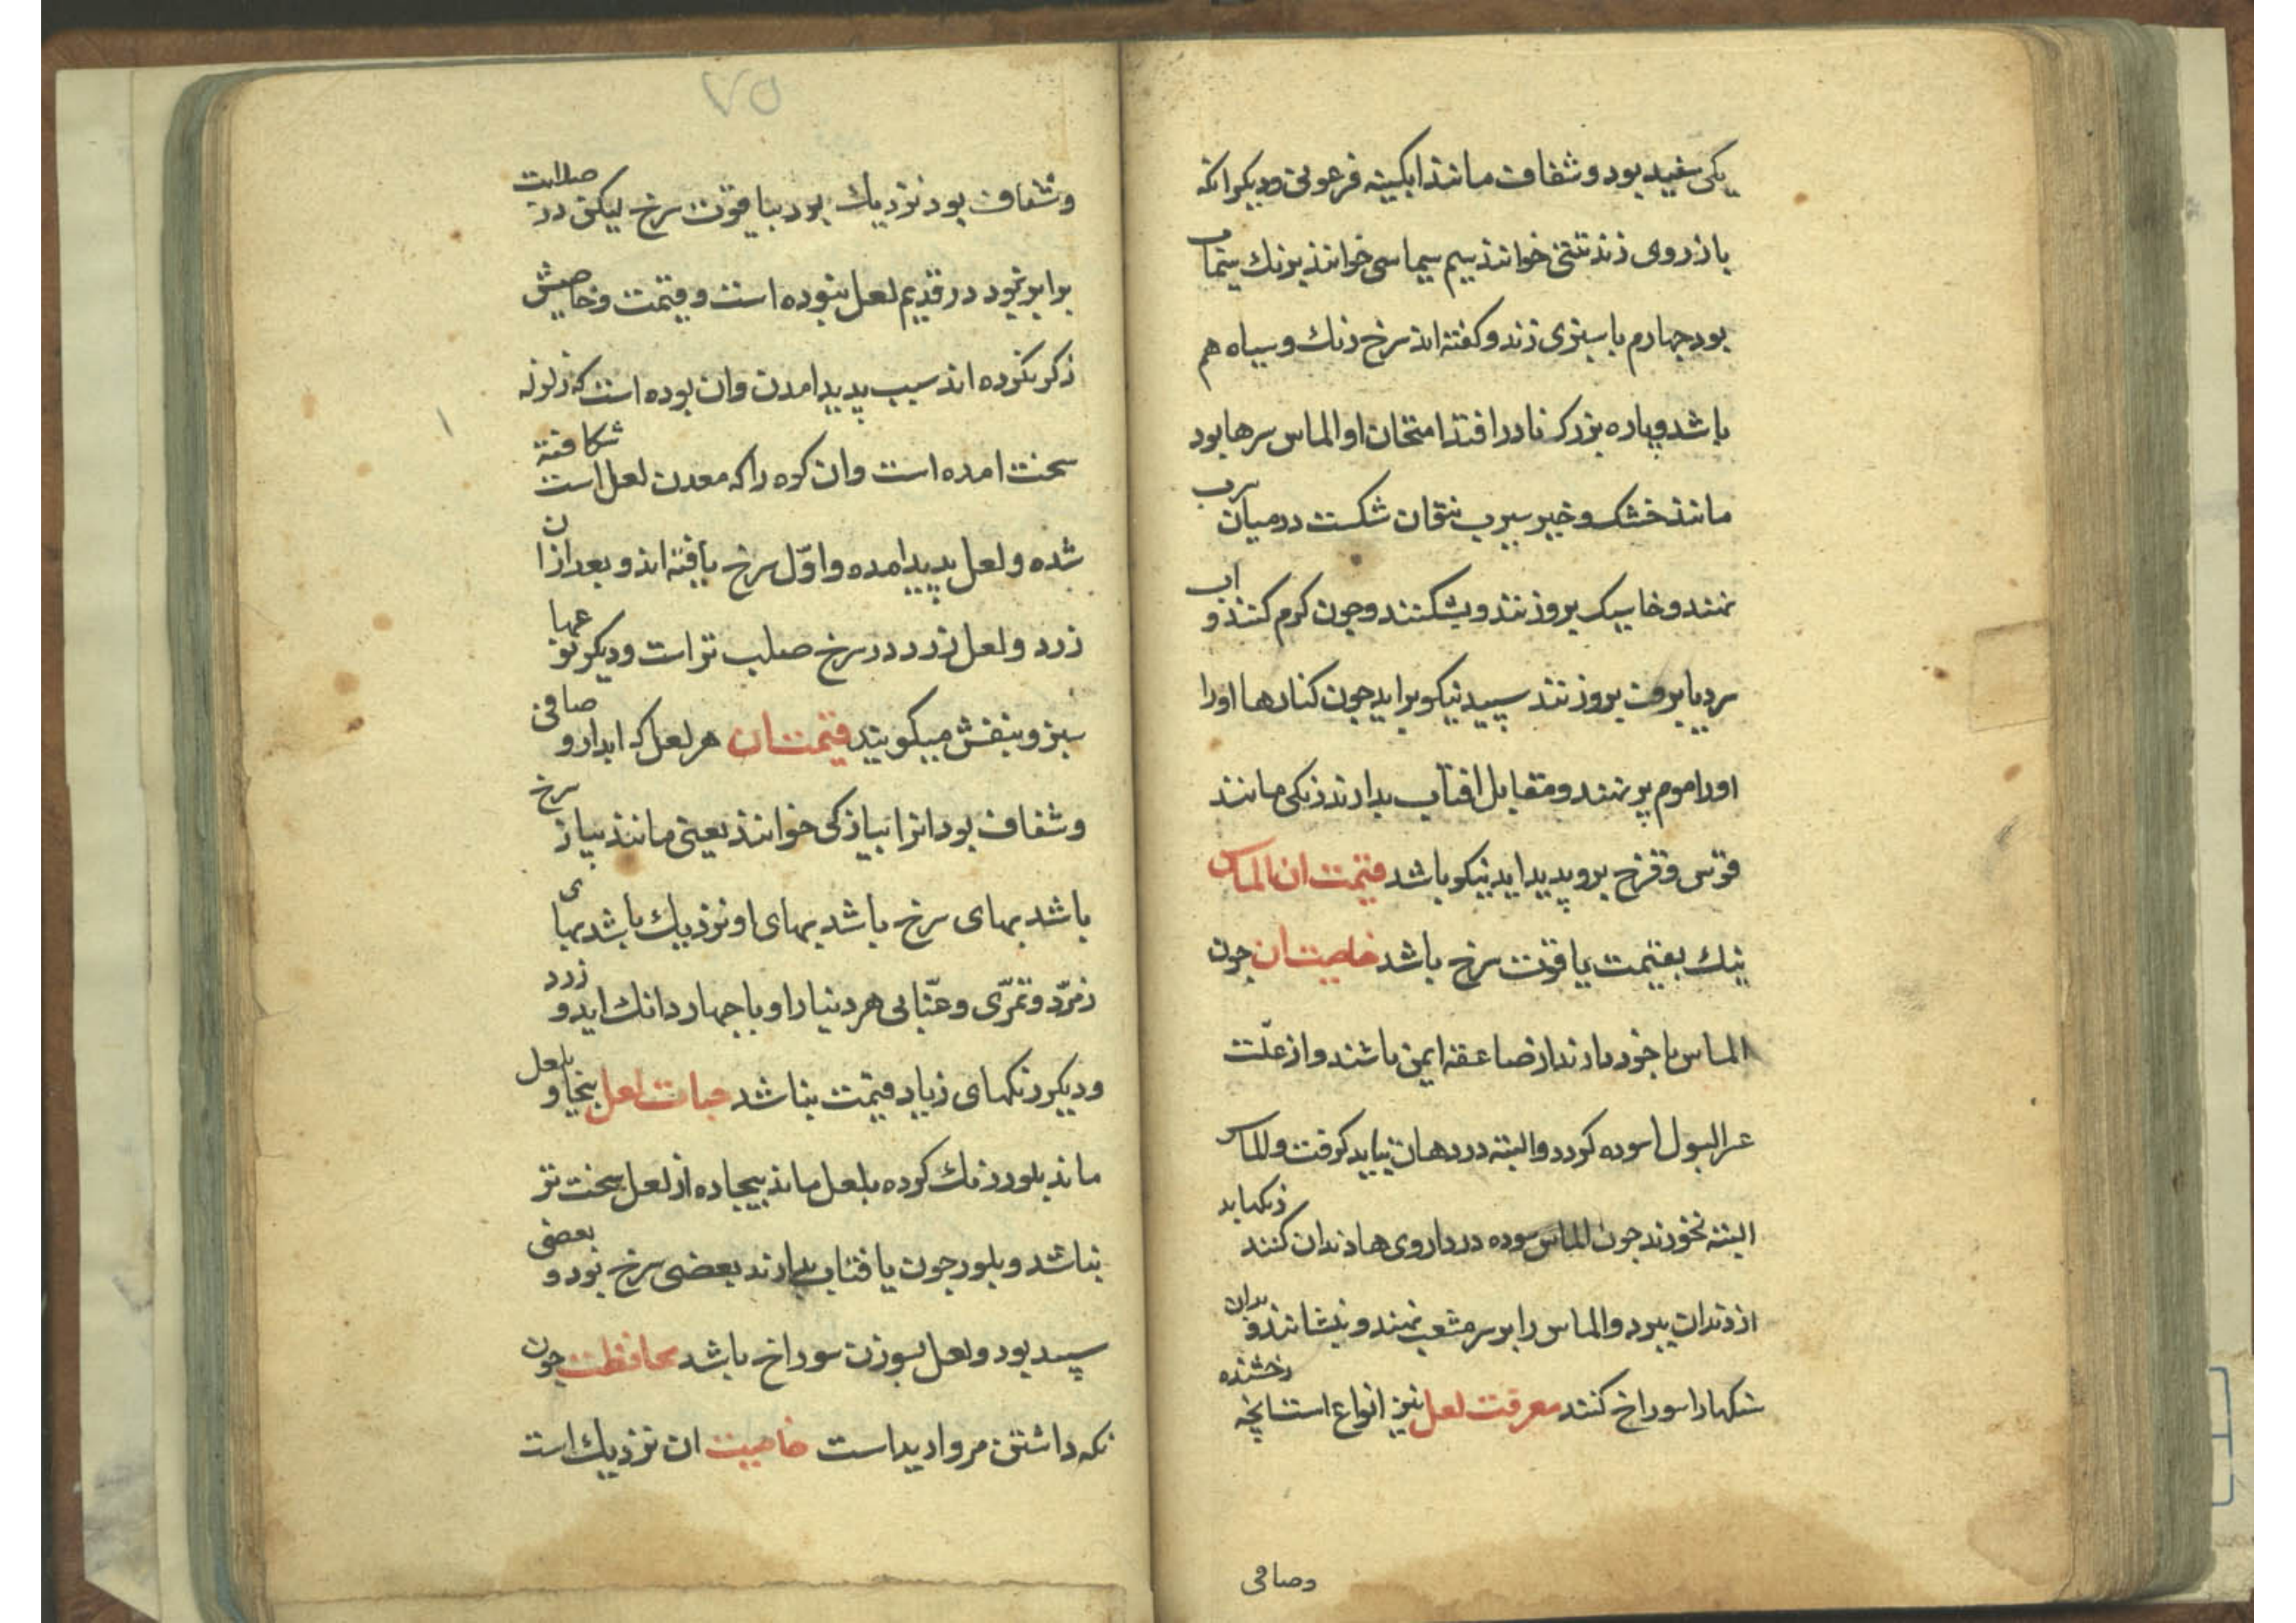 یکی سفید بود و شفاف مانند ابکینه فرعونی و دیکر انکه
با زردی زند تنتی خوانند سیم سیماسی خوانند برنک سیماب
بود چهارم با سبزی زند و کفته اند سرخ رنک و سیاه هم
باشد و پاره بزرک نادر افتد امتحان او الماس سرها بود
مانند خشک و خیر سرب نتوان شکست در میان سرب
نهند و خایسک بروزنند و بشکنند و چون کرم کنند و اب
سرد یا برف بروزنند سپید نیکو براید چون کنارها او را
او را موم بر نهند و مقابل افتاب بدارند رنکی مانند
قوس و قزح برو پدید اید نیکو باشد قیمت ان الماس
نیک بقیمت یاقوت سرخ باشد خاصیت ان چون
الماس با خود دارند از صاعقه ایمن باشند و از علّت
عسر البول اسوده کردد و البته در دهان نباید کرفت و الماس
البته نخورند چون الماس سوده در داروی ها دندان کنند زنکها بد
از دندان ببرد و الماس را بر سر مثقب نهند و بنشانند و بدان
سنکها را سوراخ کنند معرفت لعل نیز انواع است انچه رخشنده
وصافی
۷۵
و شفاف بود نزدیک بود بیاقوت سرخ لیکن در صلابت
برابر نبود در قدیم لعل نبوده است و قیمت و خاصیتش
ذکر نکرده اند سبب پدید امدن و ان بوده است که زلزله
سخت امده است و ان کوه را که معدن لعل است شکافته
شده و لعل پدید امده و اوّل سرخ یافته اند و بعد از ان
زرد و لعل زرد در سرخ صلب تر است و دیکر نوعها
سبز و بنفش میکویند قیمت ان هر لعل که ابدار و صافی
و شفاف بود انرا پیازکی خوانند یعنی مانند پیاز سرخ
باشد بهای سرخ باشد بهای او نزدیک باشد بهای
زمرّد و تمرّی و عنّابی هر دینار او با چهار دانک اید و زرد
و دیکر رنکهای زیاد قیمت نباشد حیات لعل بیخیا و بلعل
ماند بلور رنک کرده بلعل ماند بیجاده از لعل سخت تر
نباشد و بلور چون بافتاب بدارند بعضی سرخ بود و بعضی
سپید بود و لعل بسوزن سوراخ باشد محافظت چون
نکه داشتن مروارید است خاصیت ان نزدیک است